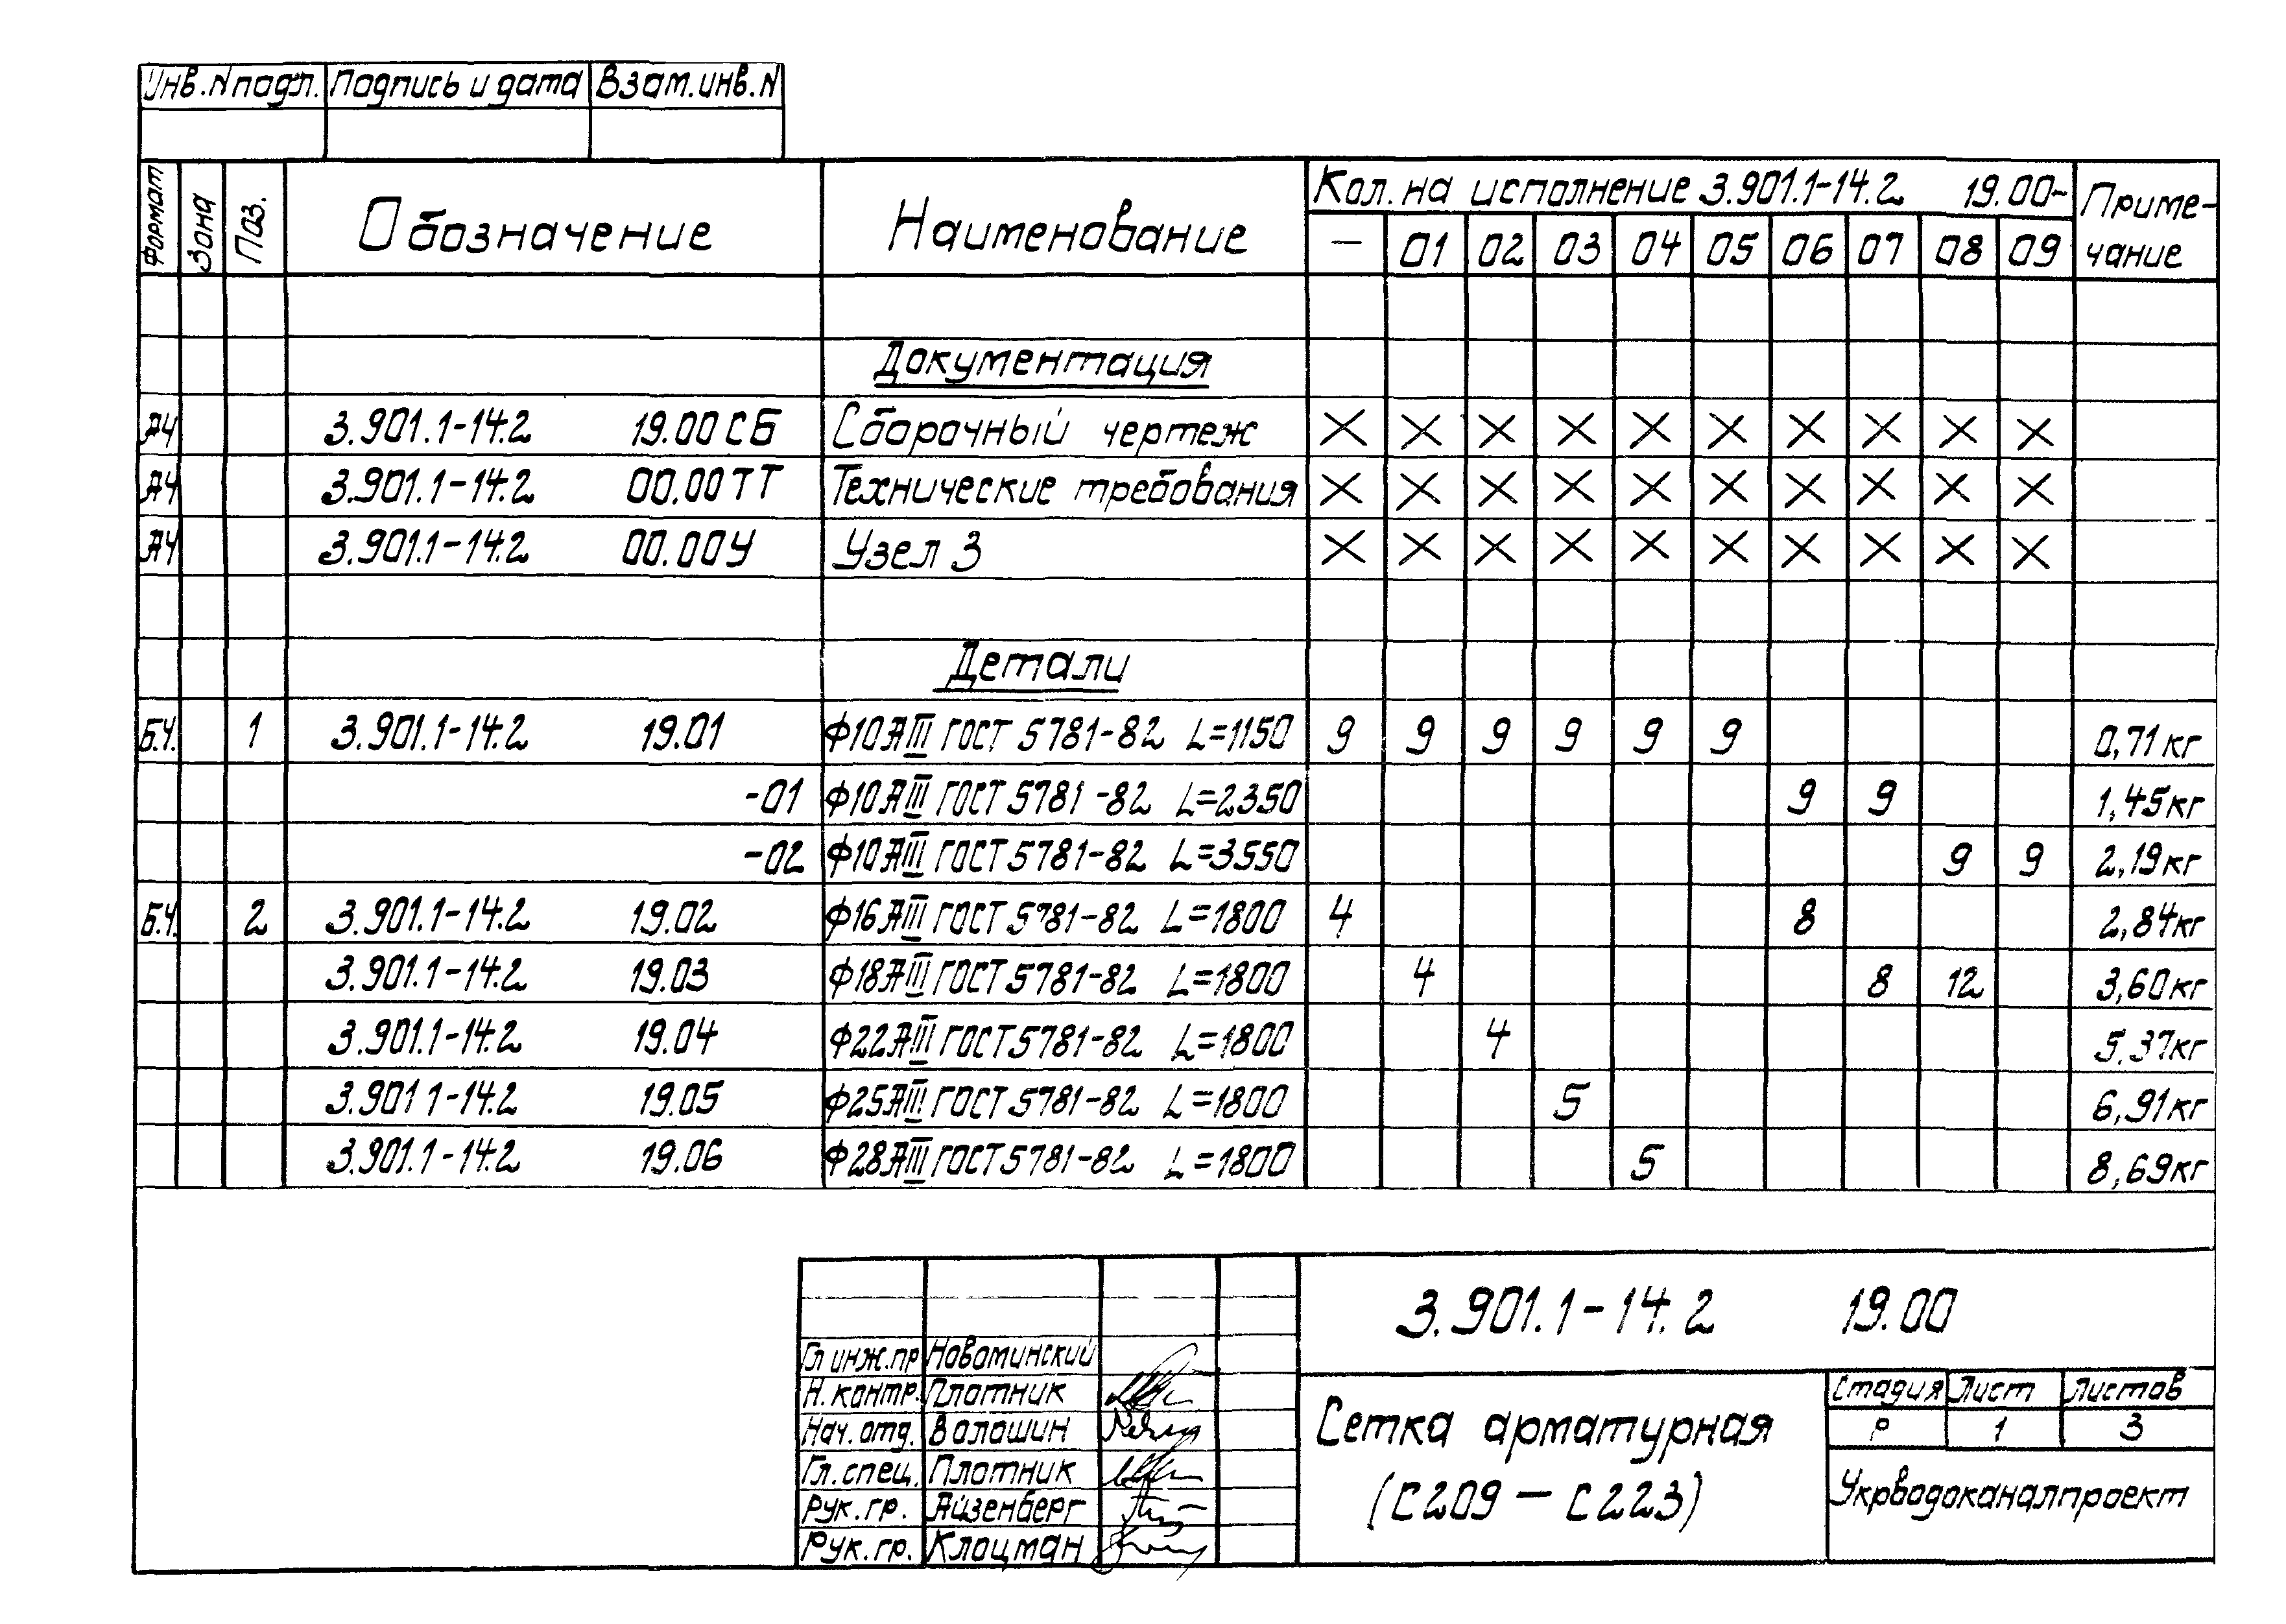 Инв.N подл. Подпись и дата Взам.инв.N
Формат Зона Поз. Обозначение Наименование Кол. на исполнение 3.901.1-14.2 19.00- Приме-
чание
— 01 02 03 04 05 06 07 08 09
Документация
А4 3.901.1-14.2 19.00 СБ Сборочный чертеж X X X X X X X X X X
А4 3.901.1-14.2 00.00 ТТ Технические требования X X X X X X X X X X
А4 3.901.1-14.2 00.00У Узел 3 X X X X X X X X X X
Детали
Б.Ч. 1 3.901.1-14.2 19.01 Ф10АIII ГОСТ 5781-82 L=1150 9 9 9 9 9 9 0,71 кг
-01 Ф10АIII ГОСТ 5781-82 L=2350 9 9 1,45 кг
-02 Ф10АIII ГОСТ 5781-82 L=3550 9 9 2,19 кг
Б.Ч. 2 3.901.1-14.2 19.02 Ф16АIII ГОСТ 5781-82 L=1800 4 8 2,84 кг
3.901.1-14.2 19.03 Ф18АIII ГОСТ 5781-82 L=1800 4 8 12 3,60 кг
3.901.1-14.2 19.04 Ф22АIII ГОСТ 5781-82 L=1800 4 5.37 кг
3.901 1-14.2 19.05 Ф25АIII ГОСТ 5781-82 L=1800 5 6,91 кг
3.901.1-14.2 19.06 Ф28АIII ГОСТ 5781-82 L=1800 5 8,69 кг
3.901.1-14.2 19.00
Гл инж.пр Новоминский
Н.контр. Плотник
Нач.отд. Волошин
Гл.спец. Плотник
Рук.гр. Айзенберг
Рук.гр. Клоцман
Сетка арматурная
(С209 — С223)
Стадия Лист Листов
Р 1 3
Укрводоканалпроект